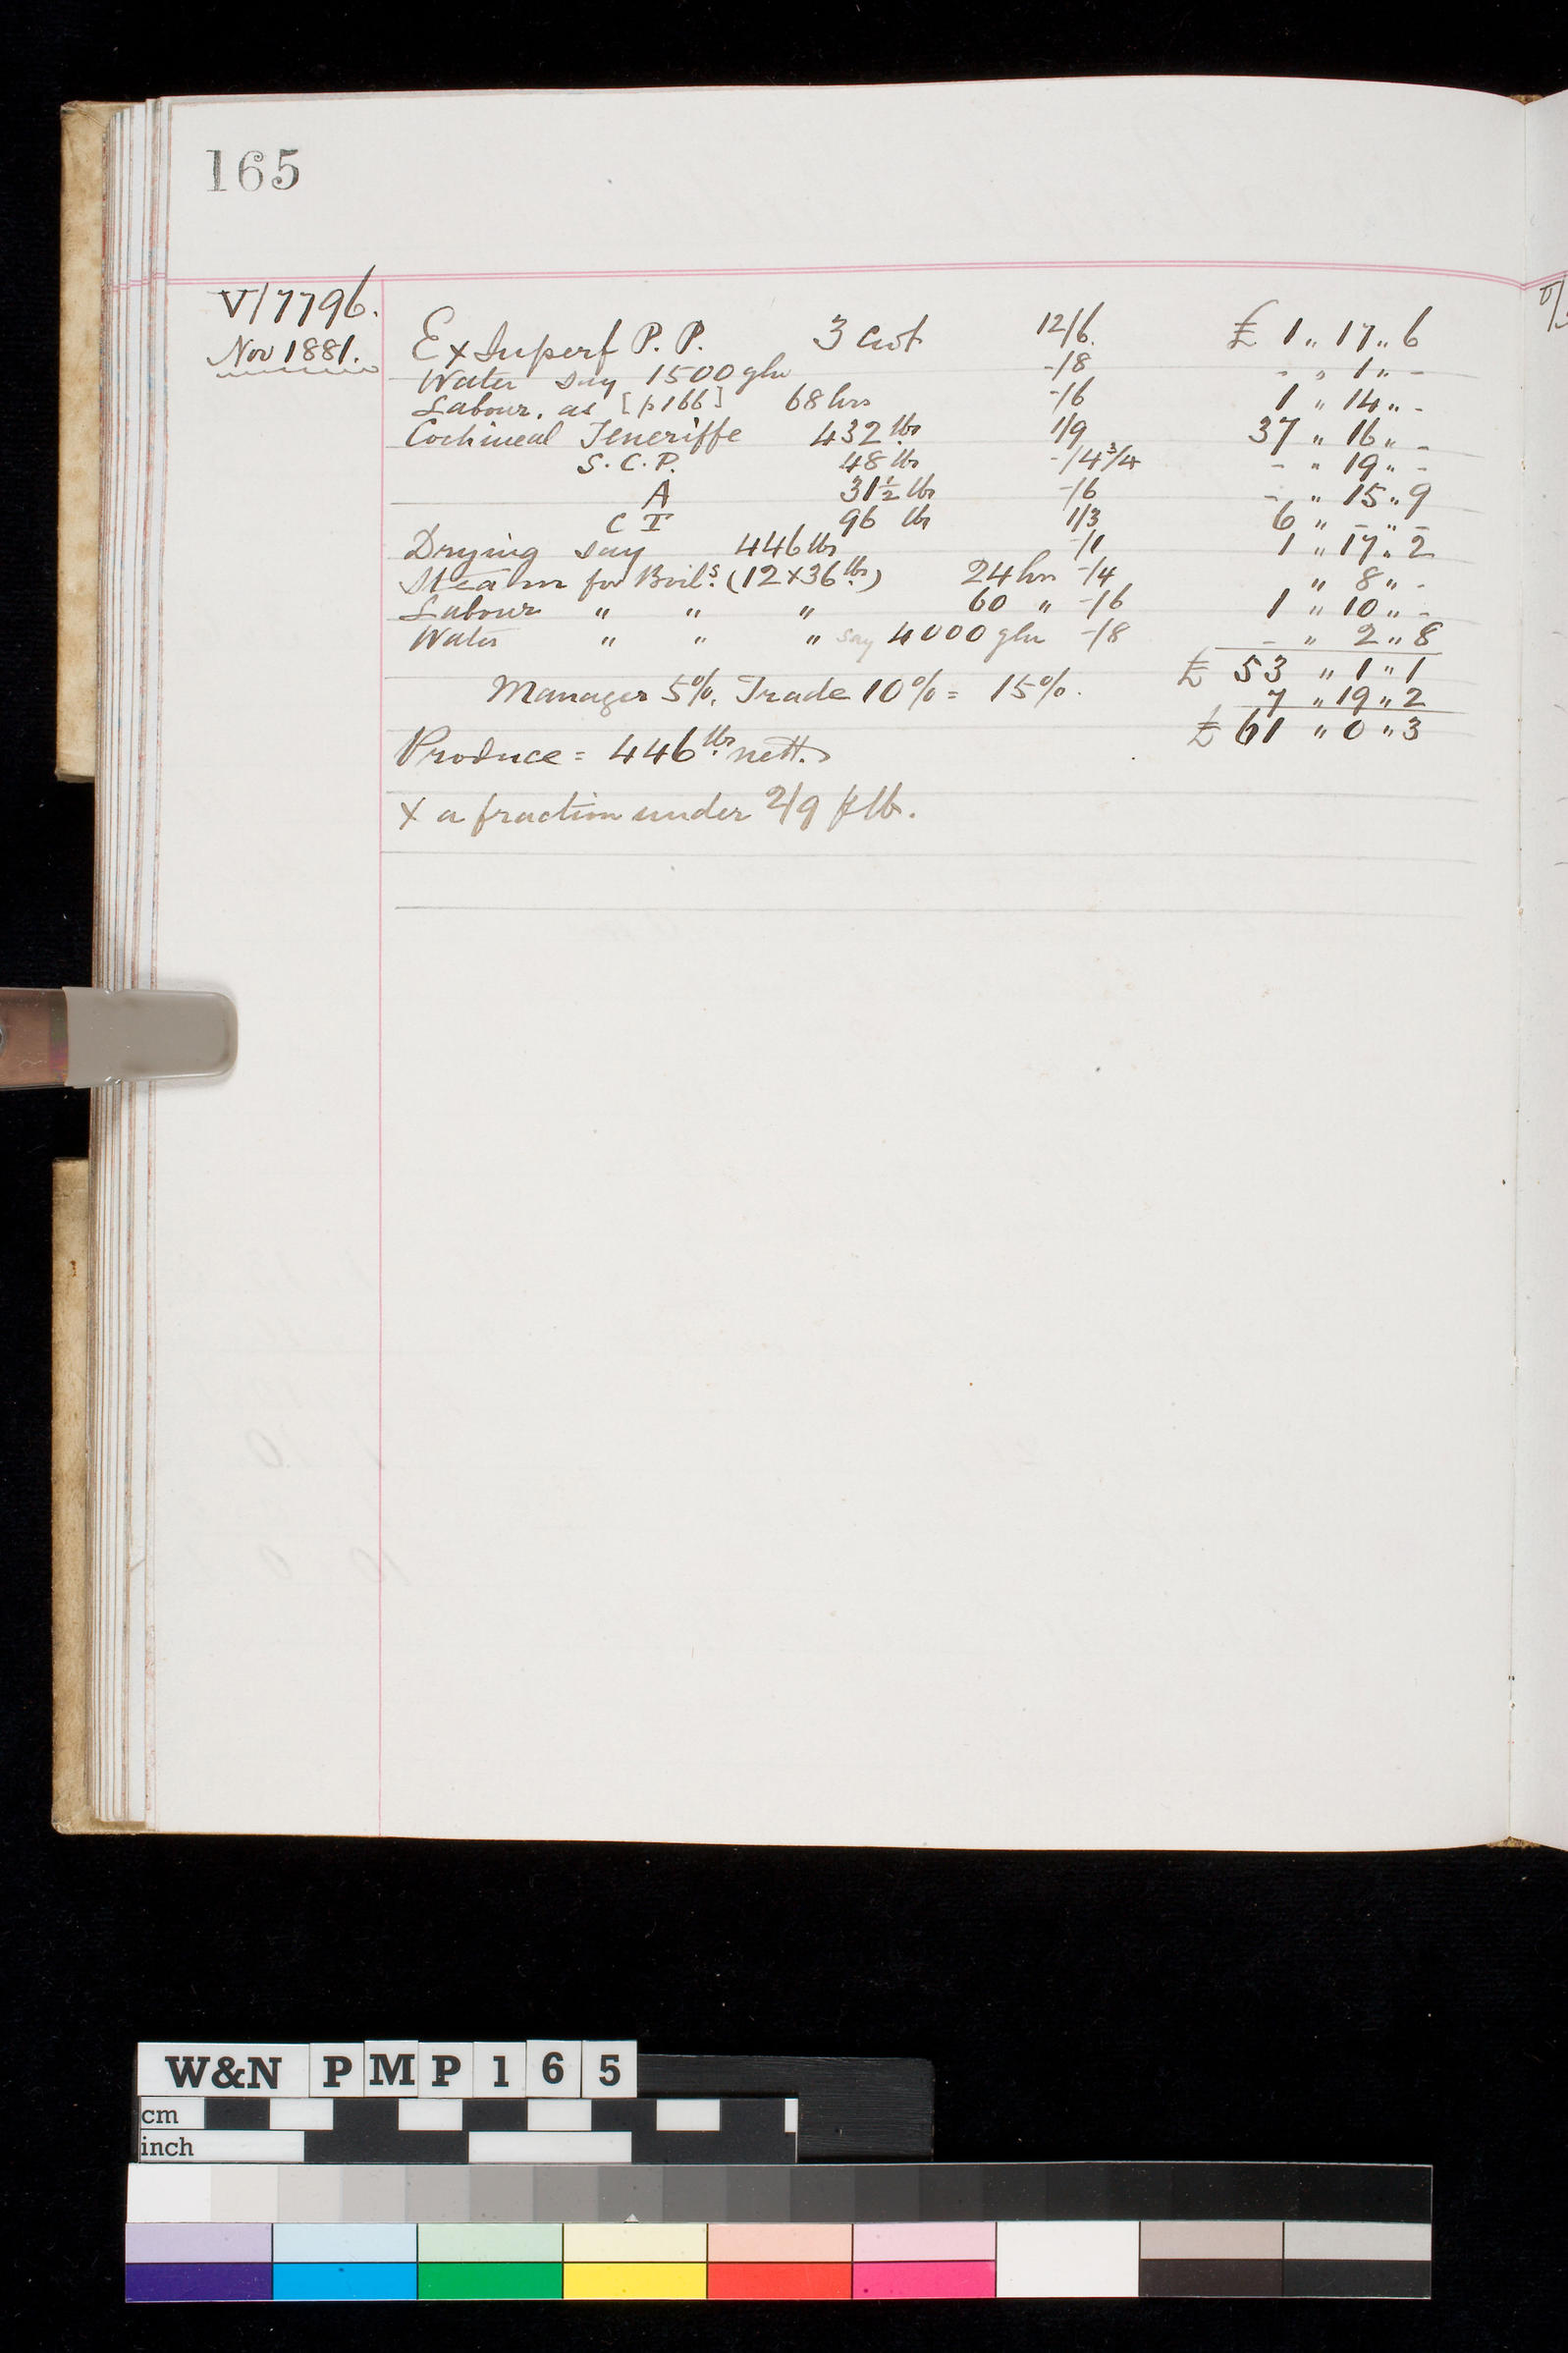 165
V/7796.
Nov 1881.
Ex Superf P. P. 3 cwt 12/6. £ 1 „ 17 „ 6
Water say 1500 glns -/8 - „ 1 „ -
Labour. as [p166] 68 hrs -/6 1 „ 14 „ -
Cochineal Teneriffe 432 lbs 1/9 37 „ 16 „ -
S. C. P. 48 lbs -/4 3/4 - „ 19 „ -
A 31½ lbs -/6 - „ 15 „ 9
C T 96 lbs 1/3 6 „ - „ -
Drying say 446 lbs -/1 1 „ 17 „ 2
Steam for Boil.s (12 x 36 lbs) 24 hrs -/4 „ 8 „ -
Labour „ „ „ 60 „ -/6 1 „ 10 „ -
Water „ „ „ say 4000 glns -/8 - „ 2 „ 8
£ 53 „ 1 „ 1
Manager 5%. Trade 10% = 15%. 7 „ 19 „ 2
£ 61 „ 0 „ 3
Produce = 446 lbs nett.
x a fraction under 2/9 p lb.
W&N PMP165
cm
inch